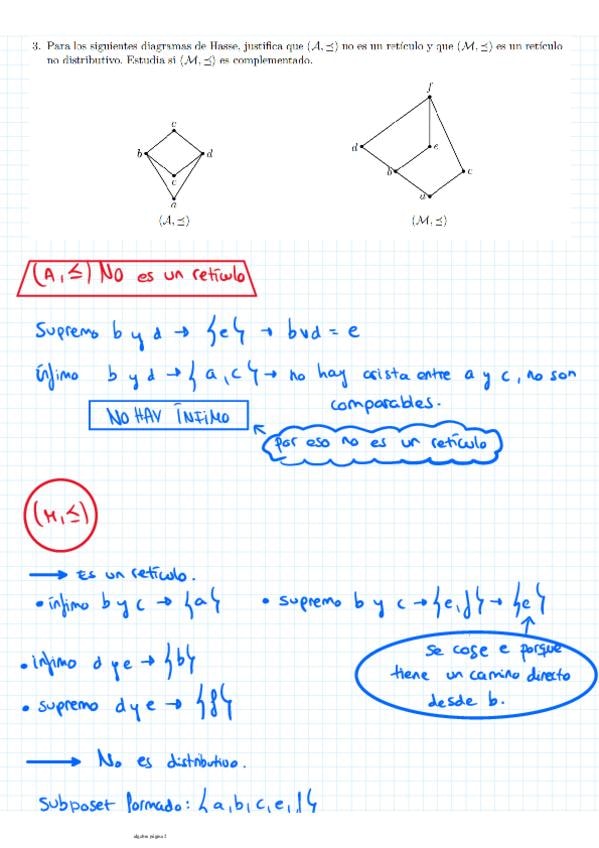 3. Para los siguientes diagramas de Hasse, justifica que (A, ⪯) no es un retículo y que (M, ⪯) es un retículo
no distributivo. Estudia si (M, ⪯) es complementado.
e
b
d
c
a
(A, ⪯)
f
d
e
b
c
a
(M, ⪯)
(A, ≤) NO es un retículo
Supremo b y d → {e} → b∨d = e
ínfimo b y d → {a, c} → no hay arista entre a y c, no son
comparables.
NO HAY ÍNFIMO
por eso no es un retículo
(M, ≤)
→ Es un retículo.
• ínfimo b y c → {a} • supremo b y c → {e, f} → {e}
Se cose e porque
tiene un camino directo
desde b.
• ínfimo d y e → {b}
• supremo d y e → {f}
→ No es distributivo.
Subposet formado: {a, b, c, e, f}